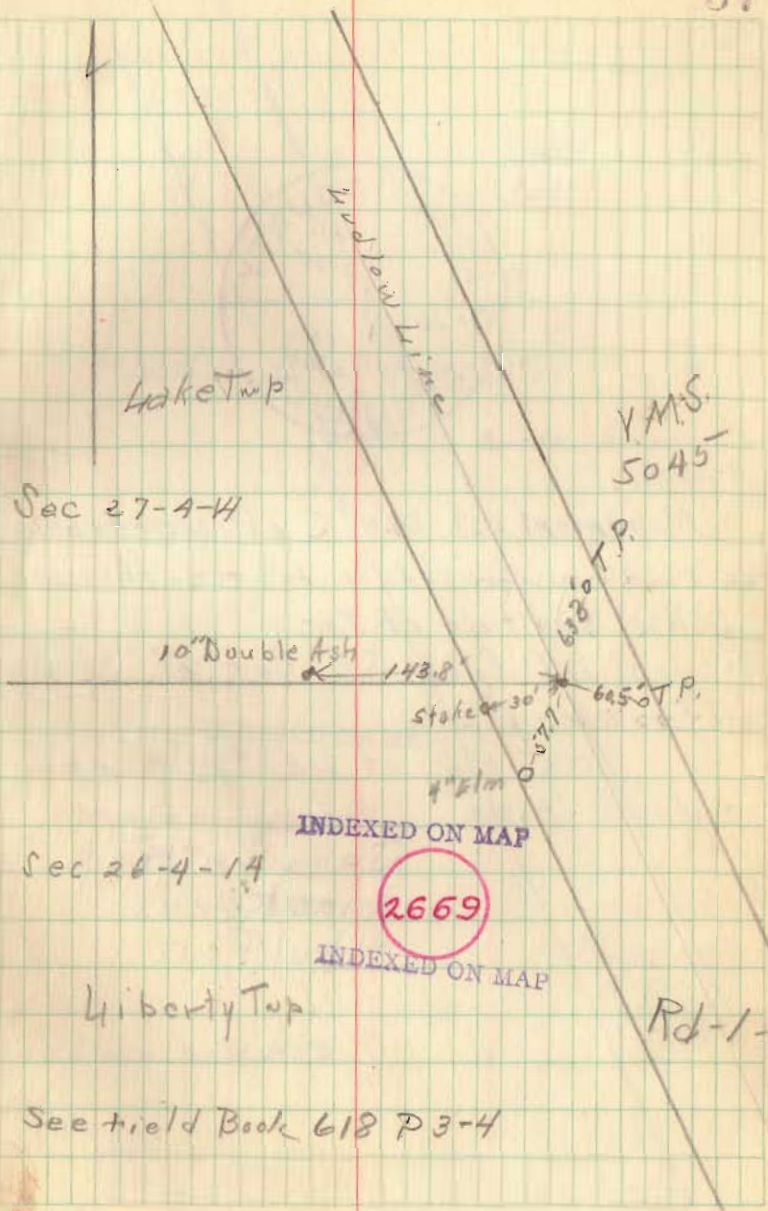 Ludlow Line
Lake Twp
V.M.S.
5045
Sec 27-4-14
T.P.
63.8
10" Double Ash
143.8'
Stake
30'
60.5
T.P.
57.7
4" Elm
INDEXED ON MAP
Sec 26-4-14
2669
INDEXED ON MAP
Liberty Twp
Rd-1-
See field Book 618 P 3-4